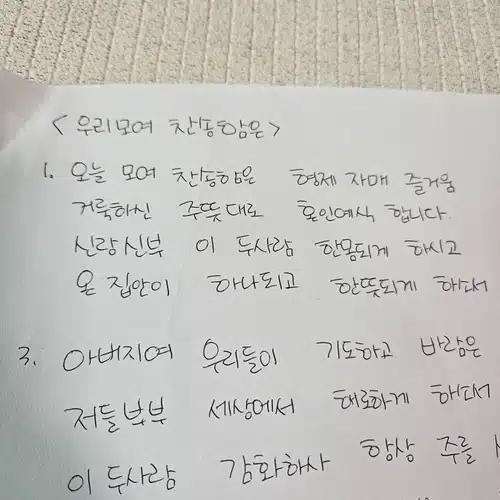 <우리모여 찬송함은>
1. 오늘 모여 찬송함은 형제 자매 즐거움
거룩하신 주뜻대로 혼인예식 합니다.
신랑신부 이 두사람 한몸되게 하시고
온 집안이 하나되고 한뜻되게 하소서
3. 아버지여 우리들이 기도하고 바람은
저들부부 세상에서 해로하게 하소서
이 두사람 감화하사 항상 주를